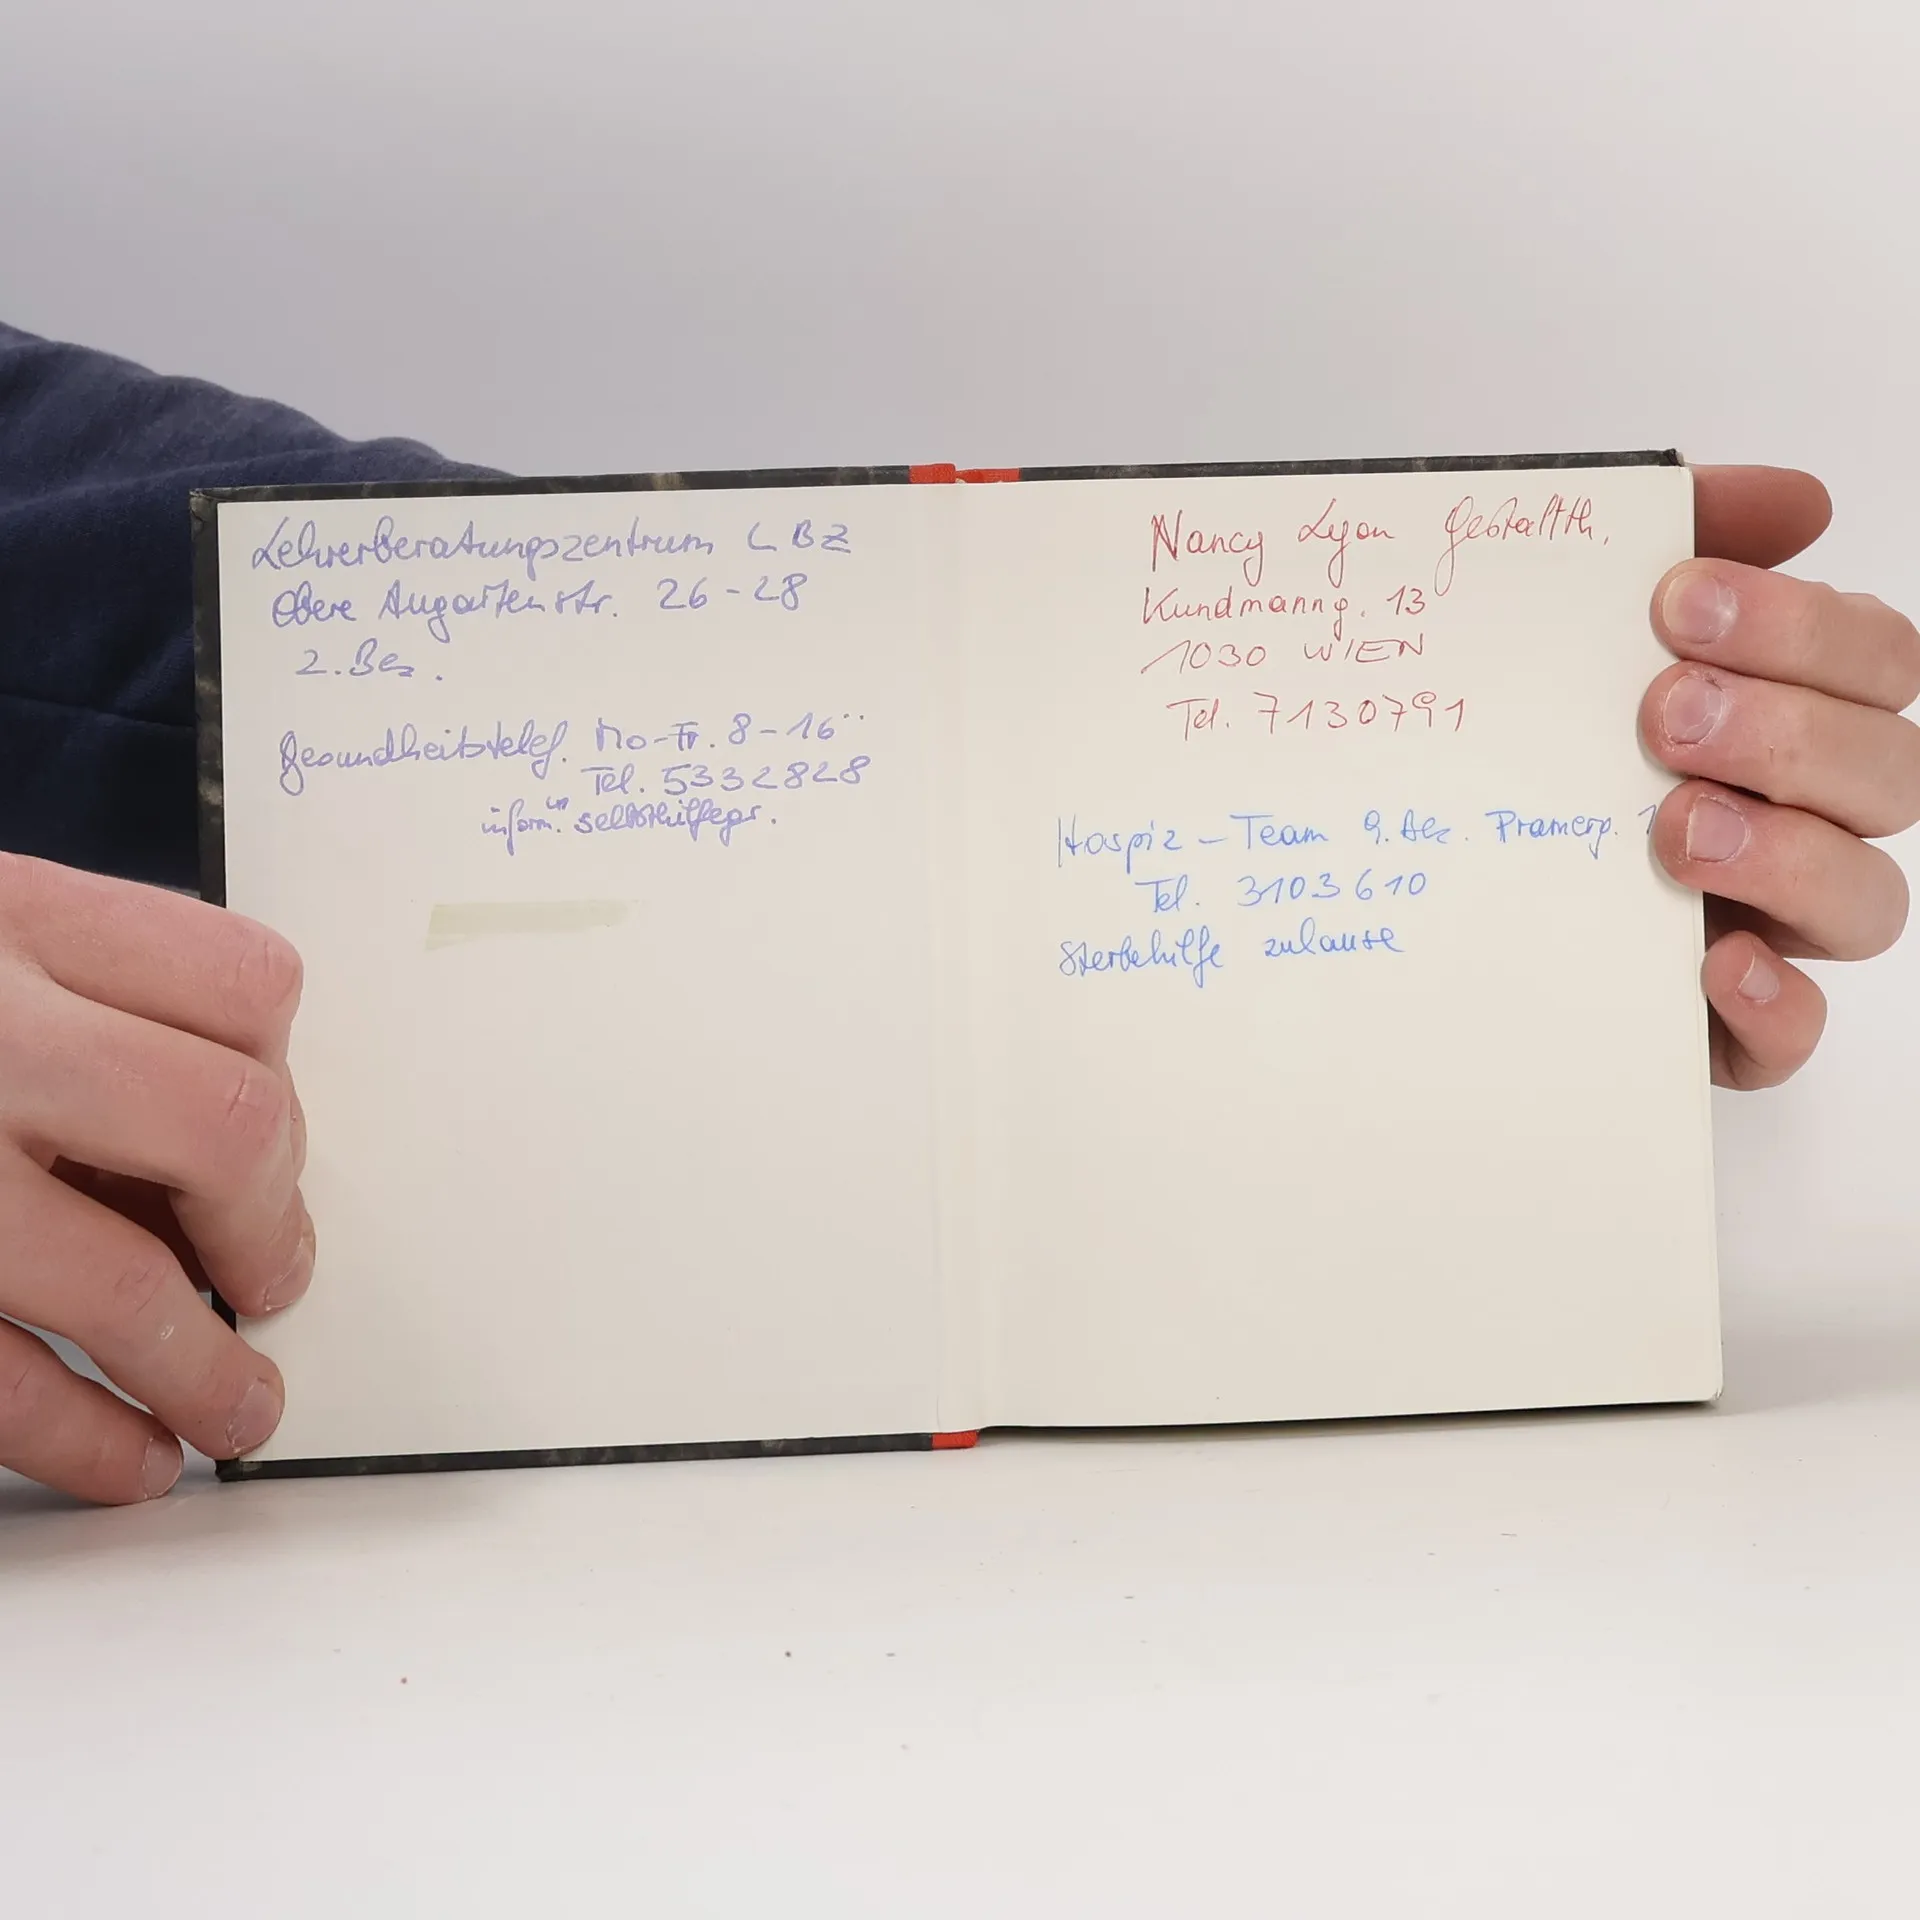 Lehrerberatungszentrum LBZ
Obere Augartenstr. 26-28
2. Bez.
Gesundheitstelef. Mo-Fr. 8-16⋅⋅
Tel. 5332828
inform. Selbsthilfegr.
Nancy Lyon Gestaltth.
Kundmanng. 13
1030 WIEN
Tel. 7130791
Hospiz-Team 9. Bez. Pramerg. 1
Tel. 3103610
Sterbehilfe zuhause